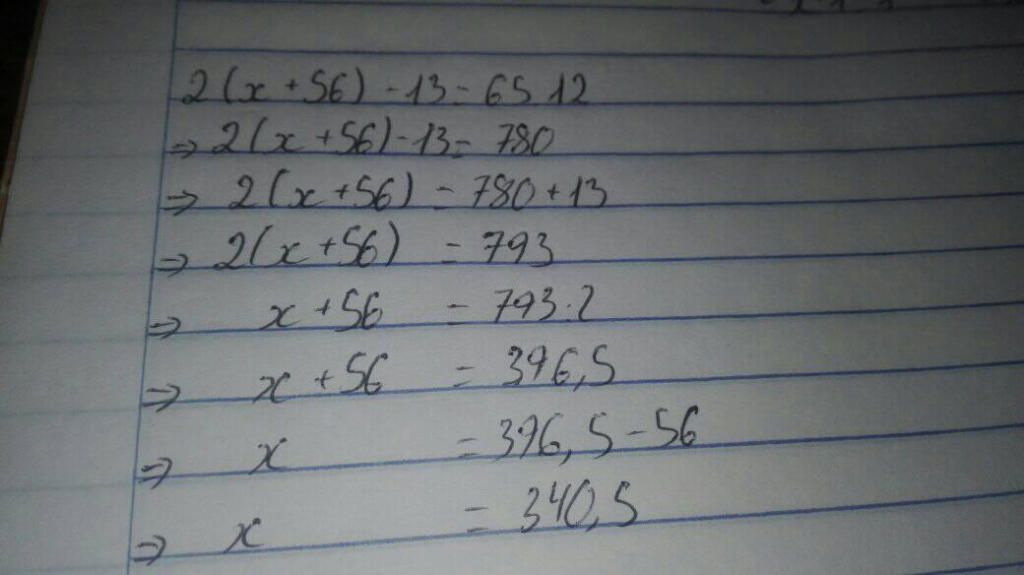 2(x+56) - 13 = 65.12
⇒ 2(x+56) - 13 = 780
⇒ 2(x+56) = 780 + 13
⇒ 2(x+56) = 793
⇒ x + 56 = 793:2
⇒ x + 56 = 396,5
⇒ x = 396,5 - 56
⇒ x = 340,5